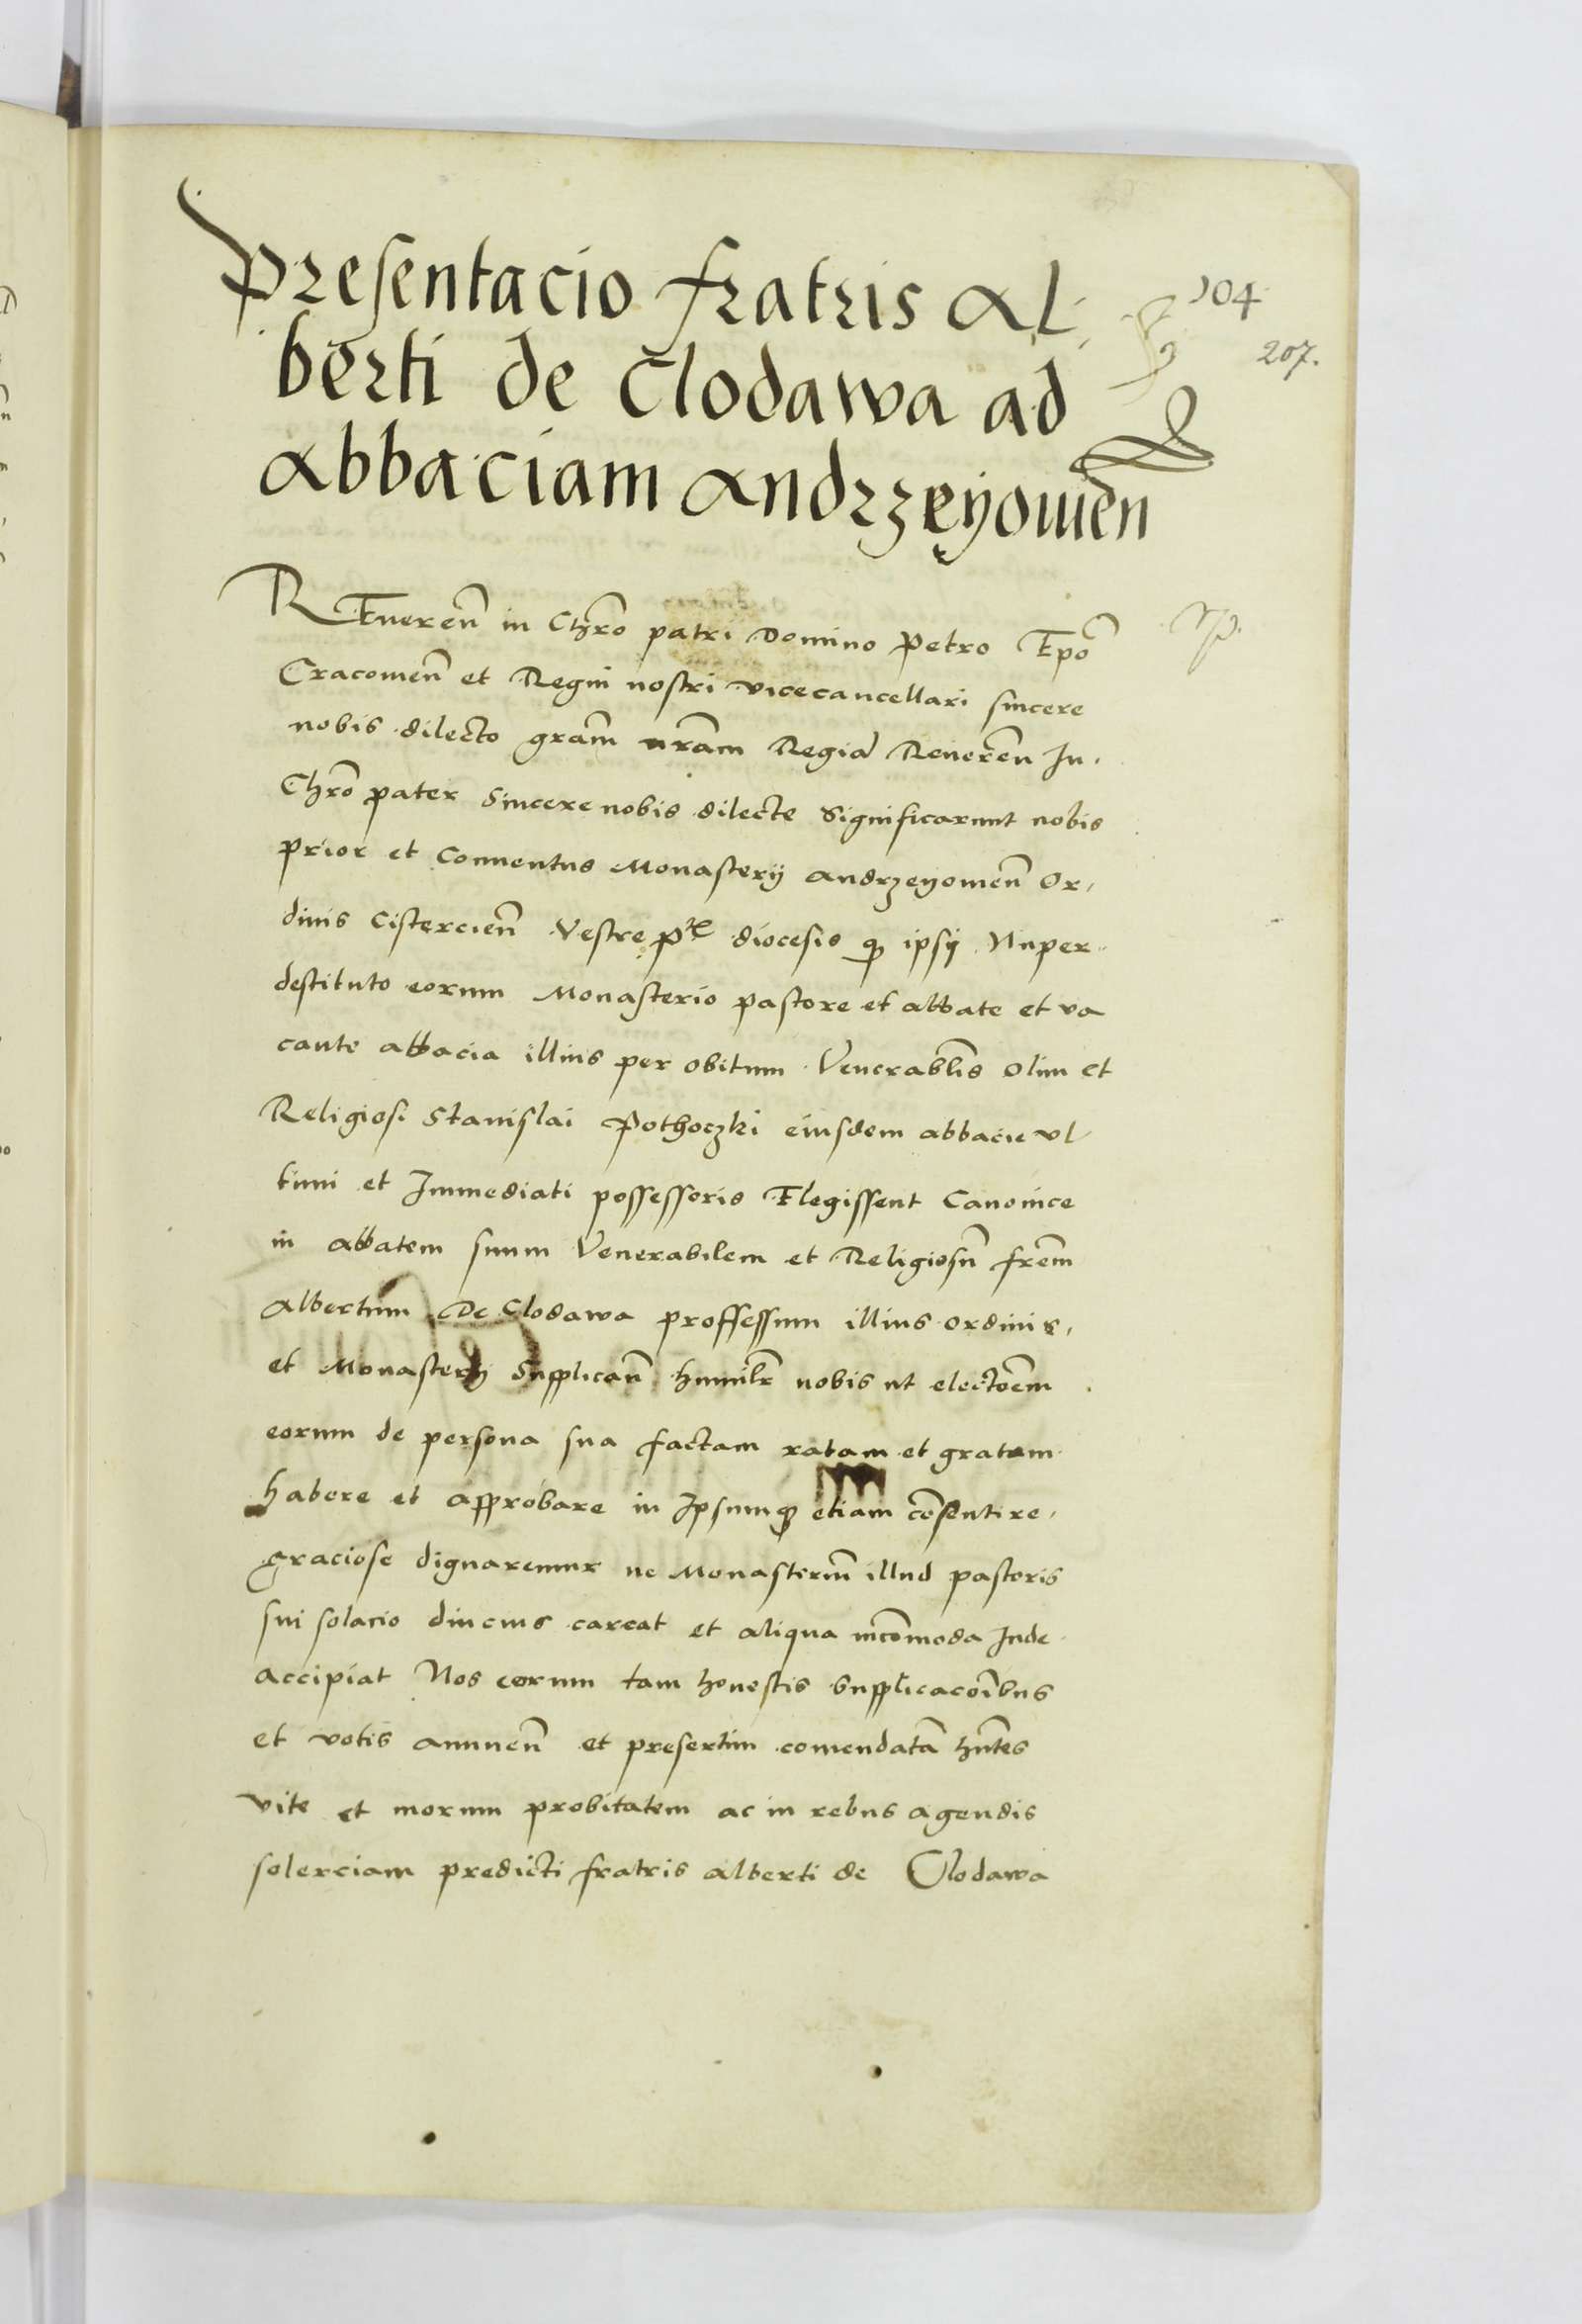 Presentacio fratris Al
berti de Clodawa ad
abbaciam Andrzeyowien
104
207.
REueren̄ in Chr̄o patri Domino Petro Ep̄o
Cracouien̄ et Regni nostri vicecancellari sincere
nobis dilecto gr̄am nr̄am Regia Reueren̄ In
Chr̄o pater Sincere nobis dilecte Significarunt nobis
prior et Conuentus Monasterij andrzeyouien̄ Or,
dinis Cistercien̄ Vestre diocesis ipsij Nuper
destituto eorum Monasterio pastore et abbate et va
cante abbacia illius per obitum Venerabl̄is Olim et
Religiosi Stanislai Pothoczki eiusdem abbacie vl
timi et Immediati possessoris Elegissent Canonice
in abbatem suum Venerabilem et Religiosū frēm
albertum De Clodawa proffessum illius ordinis,
et Monasterij Supplican̄ humilr̄ nobis ut electōem
eorum de persona sua factam ratam et gratam
habere et approbare in Ipsumq3 etiam cōsentire,
graciose dignaremur ne Monasteriū illud pastoris
sui solacio diucius careat et aliqua incōmoda Inde
accipiat Nos eorum tam honestis Supplicacōibus
et votis annuen̄ et presertim comendatā hn̄tes
vite et morum probitatem ac in rebus agendis
solerciam predicti fratris alberti de Clodawa